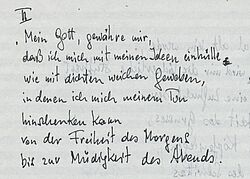 II
Mein Gott, gewähre mir,
daß ich mich mit meinen Ideen einhülle
wie mit dichten weichen Geweben,
in denen ich mich meinem Tun
hinschenken kann
von der Freiheit des Morgens
bis zur Müdigkeit des Abends.